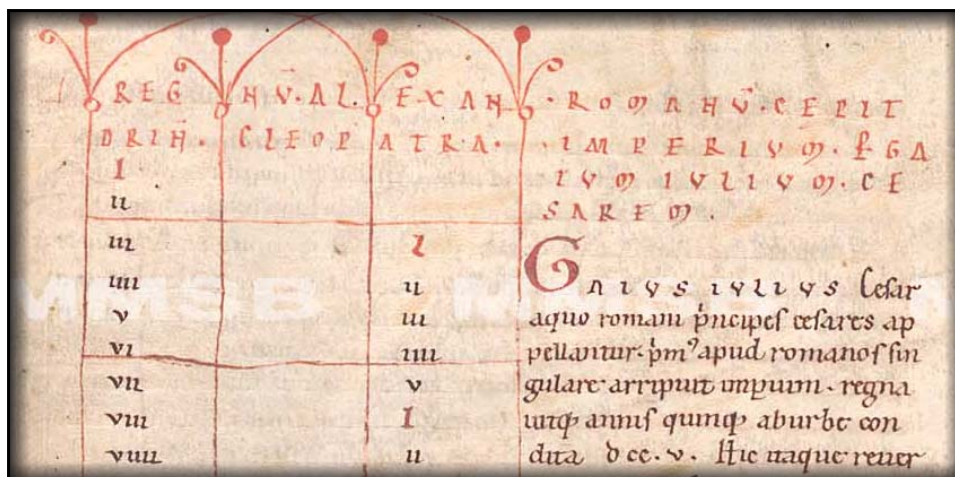 REGNU̅.ALEXAN
DRIN̅. CLEOPATRA.
.ROMANU̅.CEPIT
.IMPERIUM. P̲ GA
IUM IULIUM. CE
SAREM.
I
ii
iii
iiii
v
vi
vii
viii
viiii
I
ii
iii
iiii
v
I
ii
GAIUS IULIUS Cesar
aquo romani p̍ncipes cesares ap
pellantur. p̍mꝰ apud romanos sin
gulare arripuit imꝑium. regna
uitqꝫ annis quinqꝫ aburbe con
dita dcc.v. Hic itaque reuer